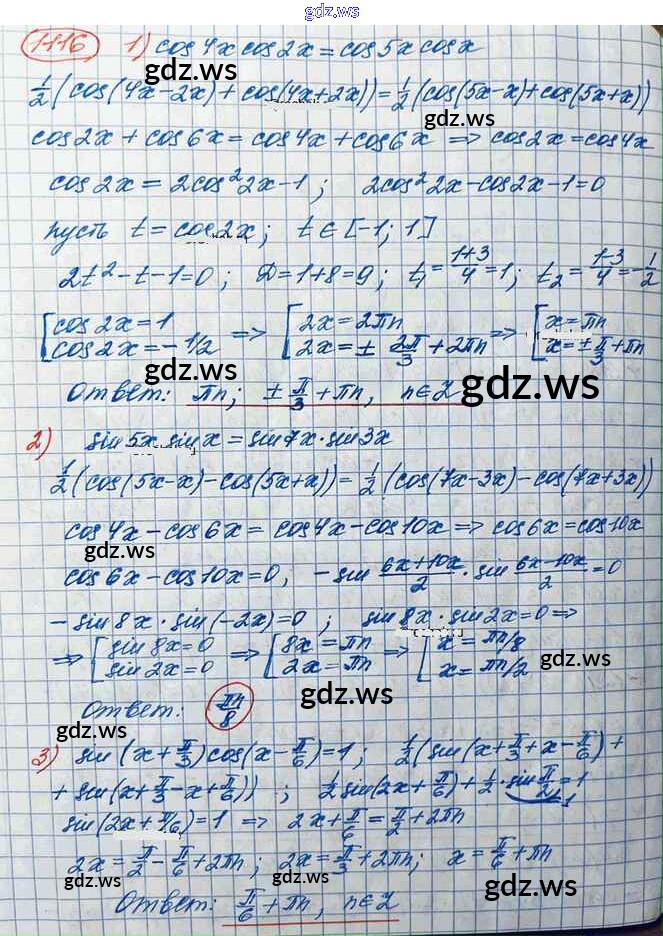 gdz.ws
1116, 1) cos4x cos2x = cos5x cosx
gdz.ws
½(cos(4x-2x) + cos(4x+2x)) = ½(cos(5x-x) + cos(5x+x))
gdz.ws
cos2x + cos6x = cos4x + cos6x => cos2x = cos4x
cos2x = 2cos²2x-1 ; 2cos²2x-cos2x-1=0
пусть t = cos2x; t ∈ [-1; 1]
gdz.ws gdz.ws
2t²-t-1=0 ; D=1+8=9; t₁ = (1+3)/4 = 1; t₂ = (1-3)/4 = -1/2
[cos2x=1 => [2x=2πn => [x=πn
cos2x=-1/2 2x=± 2π/3 + 2πn x=± π/3 + πn
gdz.ws gdz.ws
Ответ: πn; ± π/3 + πn, n∈Z
2) sin5x sinx = sin7x·sin3x
½(cos(5x-x) - cos(5x+x)) = ½(cos(7x-3x) - cos(7x+3x))
cos4x - cos6x = cos4x - cos10x => cos6x = cos10x
gdz.ws gdz.ws
cos6x - cos10x = 0; -sin (6x+10x)/2 · sin (6x-10x)/2 = 0
-sin8x·sin(-2x)=0 ; sin8x·sin2x=0 =>
=> [sin8x=0 => [8x=πn => [x=πn/8
sin2x=0 2x=πn x=πn/2
gdz.ws gdz.ws
Ответ: πn/8
gdz.ws
3) sin(x+π/3)cos(x-π/6)=1; ½(sin(x+π/3+x-π/6)+
+ sin(x+π/3-x+π/6)) ; ½sin(2x+π/6)+½·sin π/2=1
gdz.ws gdz.ws
1
sin(2x+π/6)=1 => 2x+π/6 = π/2+2πn
2x = π/2 - π/6 + 2πn; 2x = π/3 + 2πn; x = π/6 + πn
gdz.ws gdz.ws
Ответ: π/6 + πn, n∈Z
gdz.ws